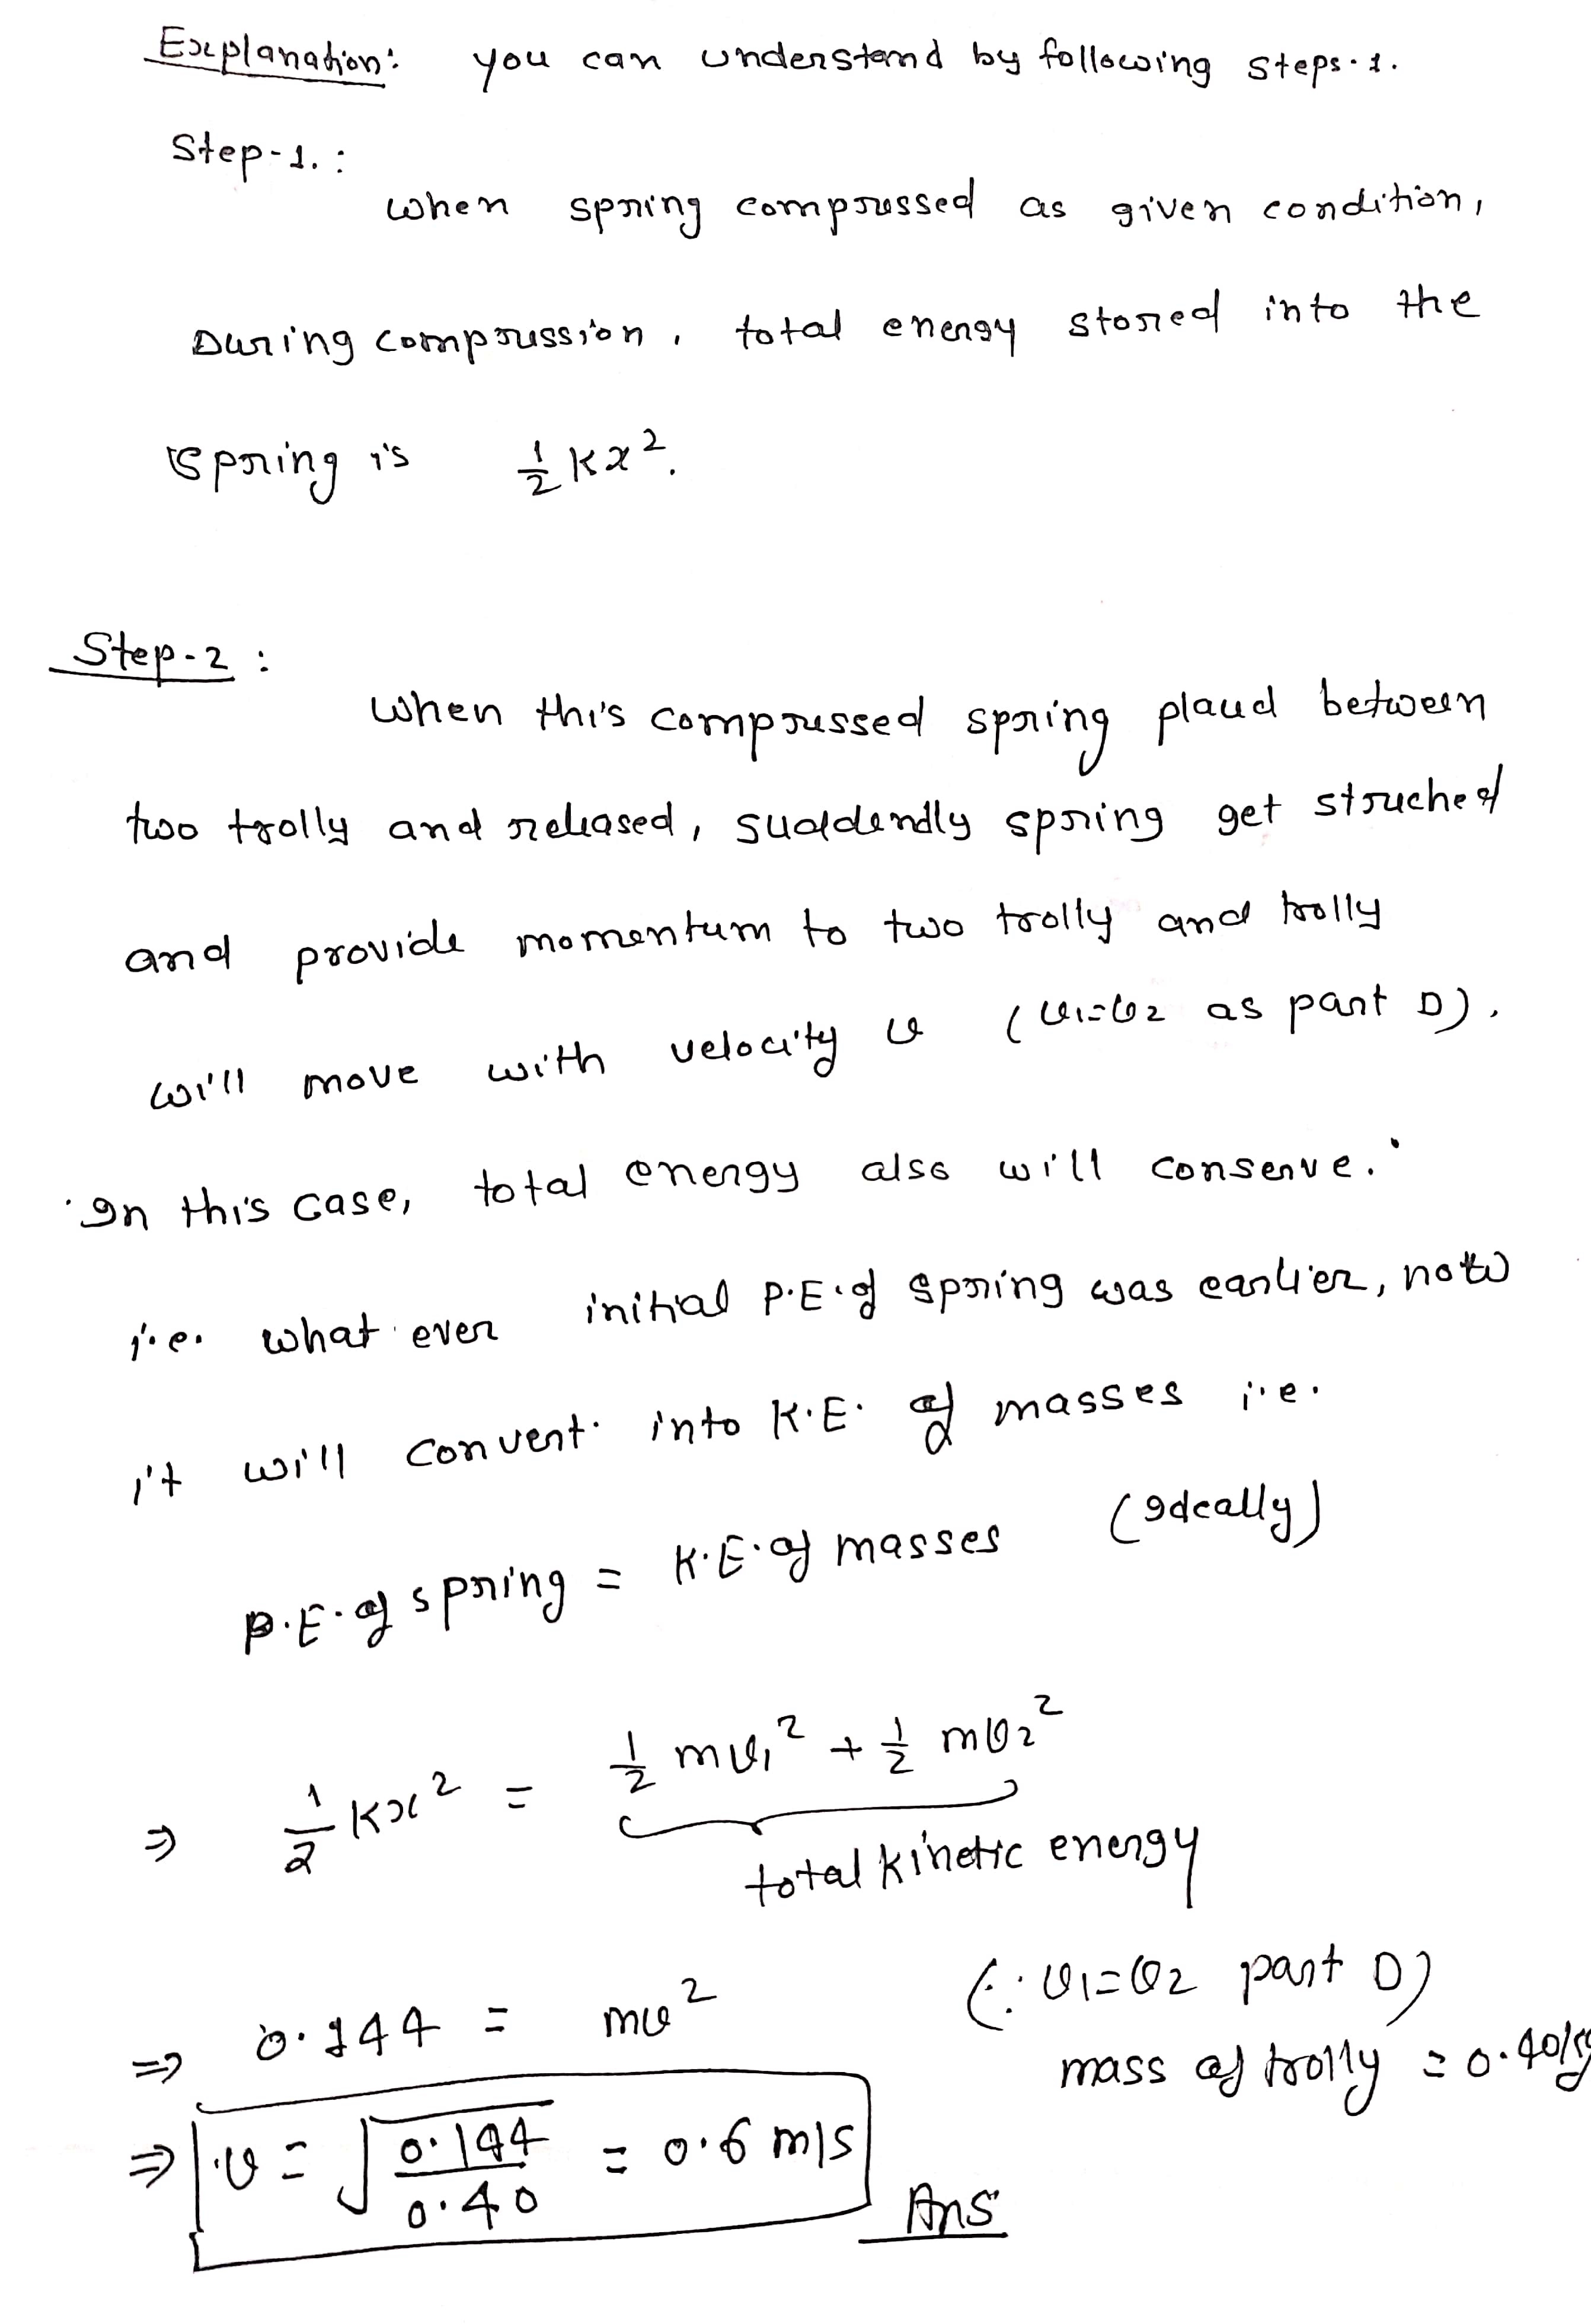 Explanation: you can understand by following steps.1.
Step-1.:
when spring compressed as given condition,
During compression, total energy stored into the
spring is ½ Kx².
Step-2 :
when this compressed spring placed between
two trolly and released, suddendly spring get streched
and provide momentum to two trolly and trolly
will move with velocity v (v₁=v₂ as part D).
In this case, total energy also will conserve.
i.e. what ever initial P.E. of spring was earlier, now
it will convert into K.E. of masses i.e.
P.E. of spring = K.E. of masses (Ideally)
⇒ ½ Kx² = ½ mv₁² + ½ mv₂²
total kinetic energy
⇒ 0.144 = mv² (∵ v₁=v₂ part D)
mass of trolly = 0.40kg
⇒ v = √(0.144/0.40) = 0.6 m/s
Ans